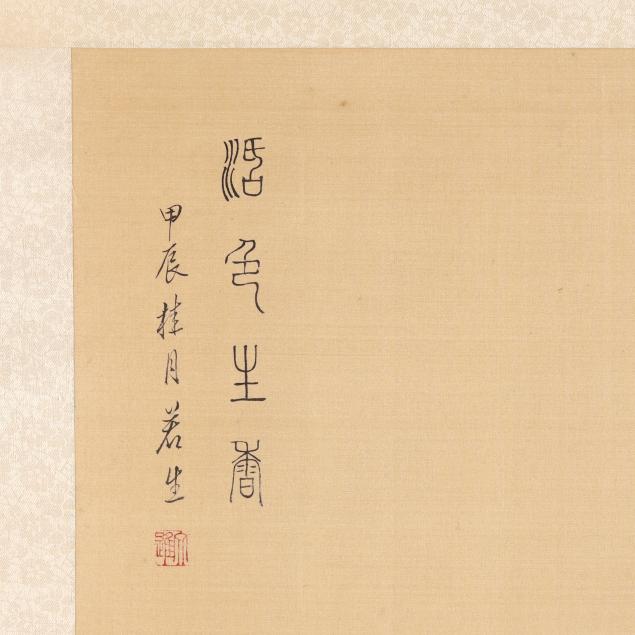 活色生香
甲辰桂月若生